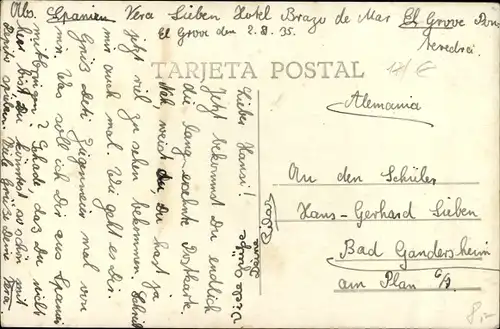 Abs. Spanien Vera Lieben Hotel Brazo de Mar El Grove Pon-
tevedra.
El Grove den 2.8.35.
TARJETA POSTAL
Alemania
An den Schüler
Hans-Gerhard Lieben
Bad Gandersheim
am Plan 6/7
Lieber Hansi!
Jetzt bekommst Du endlich
die lang ersehnte Postkarte.
Nah weisst du, Du hast ja
jetzt viel zu sehen bekommen. Schreib
mir auch mal. Wie geht es Dir.
Grüß dich mal von
mir. Was soll ich Dir aus Spanien
mitbringen? Schade, daß Du nicht
hier bist. Du könntest so schön mit
spielen. Viele Grüße Deine Vera.
Viele Grüße
8,-